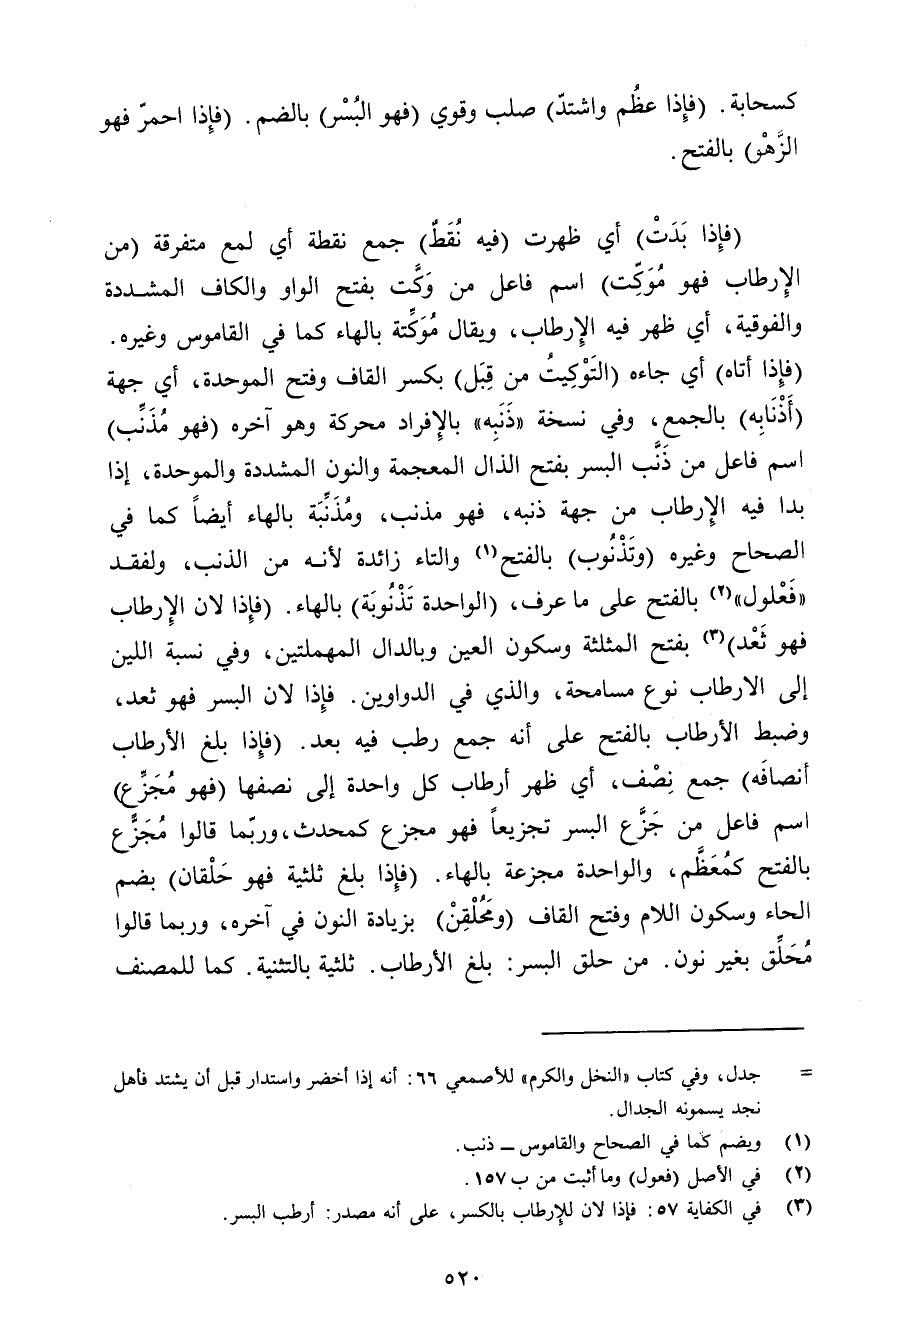 كسحابة. (فإِذا عظُم واشتدّ) صلب وقوي (فهو البُسْر) بالضم. (فإِذا احمرّ فهو
الزَّهْو) بالفتح.
(فإِذا بَدَتْ) أي ظهرت (فيه نُقَطٌ) جمع نقطة أي لمع متفرقة (من
الإِرطاب فهو مُوَكِّت) اسم فاعل من وَكَّت بفتح الواو والكاف المشددة
والفوقية، أي ظهر فيه الإِرطاب، ويقال مُوَكِّتة بالهاء كما في القاموس وغيره.
(فإِذا أتاه) أي جاءه (التَوْكِيتُ من قِبَل) بكسر القاف وفتح الموحدة، أي جهة
(أَذْنَابِه) بالجمع، وفي نسخة «ذَنَبِه» بالإِفراد محركة وهو آخره (فهو مُذَنِّب)
اسم فاعل من ذَنَّب البسر بفتح الذال المعجمة والنون المشددة والموحدة، إذا
بدا فيه الإِرطاب من جهة ذنبه، فهو مذنب، ومُذَنِّبَة بالهاء أيضاً كما في
الصحاح وغيره (وتَذْنُوب) بالفتح(١) والتاء زائدة لأنه من الذنب، ولفقد
«فَعْلول»(٢) بالفتح على ما عرف، (الواحدة تَذْنُوبَة) بالهاء. (فإِذا لان الإِرطاب
فهو ثَعْد)(٣) بفتح المثلثة وسكون العين وبالدال المهملتين، وفي نسبة اللين
إلى الارطاب نوع مسامحة، والذي في الدواوين. فإِذا لان البسر فهو ثعد،
وضبط الأرطاب بالفتح على أنه جمع رطب فيه بعد. (فإِذا بلغ الأرطاب
أنصافَه) جمع نِصْف، أي ظهر أرطاب كل واحدة إلى نصفها (فهو مُجَزِّع)
اسم فاعل من جَزَّع البسر تجزيعاً فهو مجزع كمحدث، وربّما قالوا مُجَزَّع
بالفتح كمُعَظَّم، والواحدة مجزعة بالهاء. (فإِذا بلغ ثلثية فهو حَلْقان) بضم
الحاء وسكون اللام وفتح القاف (ومُحُلْقِنْ) بزيادة النون في آخره، وربما قالوا
مُحَلِّق بغير نون. من حلق البسر: بلغ الأرطاب. ثلثية بالتثنية. كما للمصنف
= جدل، وفي كتاب «النخل والكرم» للأصمعي ٦٦: أنه إذا أخضر واستدار قبل أن يشتد فأهل
نجد يسمونه الجدال.
(١) ويضم كما في الصحاح والقاموس ــ ذنب.
(٢) في الأصل (فعول) وما أثبت من ب ١٥٧.
(٣) في الكفاية ٥٧: فإذا لان للإِرطاب بالكسر، على أنه مصدر: أرطب البسر.
٥٢٠